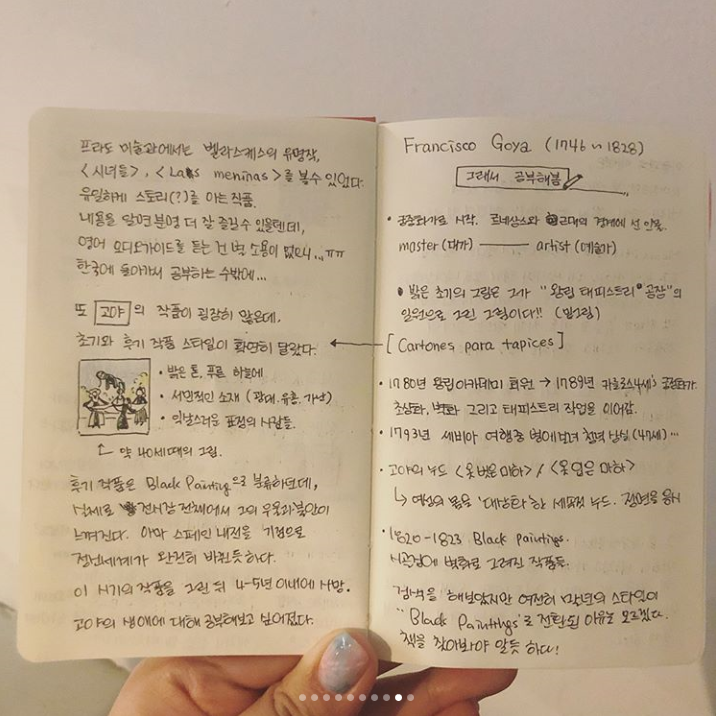 프라도 미술관에서는 벨라스케스의 유명작,
<시녀들>, <Las meninas>를 볼 수 있었다.
유일하게 스토리(?)를 아는 작품.
내용을 알면 분명 더 잘 즐길수 있을텐데,
영어 오디오가이드를 듣는 건 별 소용이 없으니...ㅠㅠ
한국에 돌아가서 공부하는 수밖에...
또 고야의 작품이 굉장히 많은데,
초기와 후기 작품 스타일이 확연히 달랐다.
• 밝은 톤, 푸른 하늘에
• 서민적인 소재 (광대. 유흥. 가난)
• 익살스러운 표정의 사람들.
약 40세때의 그림.
후기 작품은 Black Painting으로 분류하던데,
실제로 전시장 전체에서 그의 우울과 불안이
느껴진다. 아마 스페인 내전을 기점으로
정신세계가 완전히 바뀐듯하다.
이 시기의 작품을 그린 뒤 4-5년 이내에 사망.
고야의 생애에 대해 공부해보고 싶어졌다.
Francisco Goya (1746~1828)
그래서 공부해봄
• 궁중화가로 시작. 르네상스와 근대의 경계에 선 인물.
master (대가) — artist (예술가)
• 밝은 초기의 그림은 그가 "왕립 태피스트리 공장"의
일원으로 그린 그림이다!! (밑그림)
[Cartones para tapices]
• 1780년 왕립아카데미 회원 → 1789년 카를로스4세's 궁정화가.
초상화, 벽화 그리고 태피스트리 작업을 이어감.
• 1793년 세비아 여행중 병에걸려 청력 상실 (47세)...
• 고야의 누드 <옷 벗은 마하> / <옷 입은 마하>
↳ 여성의 몸을 '대상화'한 세속적 누드. 정면을 응시
• 1820-1823 Black paintings.
시골집에 벽화로 그려진 작품들.
검색을 해보았지만 여전히 말년의 스타일이
"Black Paintings"로 전환된 이유를 모르겠다.
책을 찾아봐야 알듯 하다!